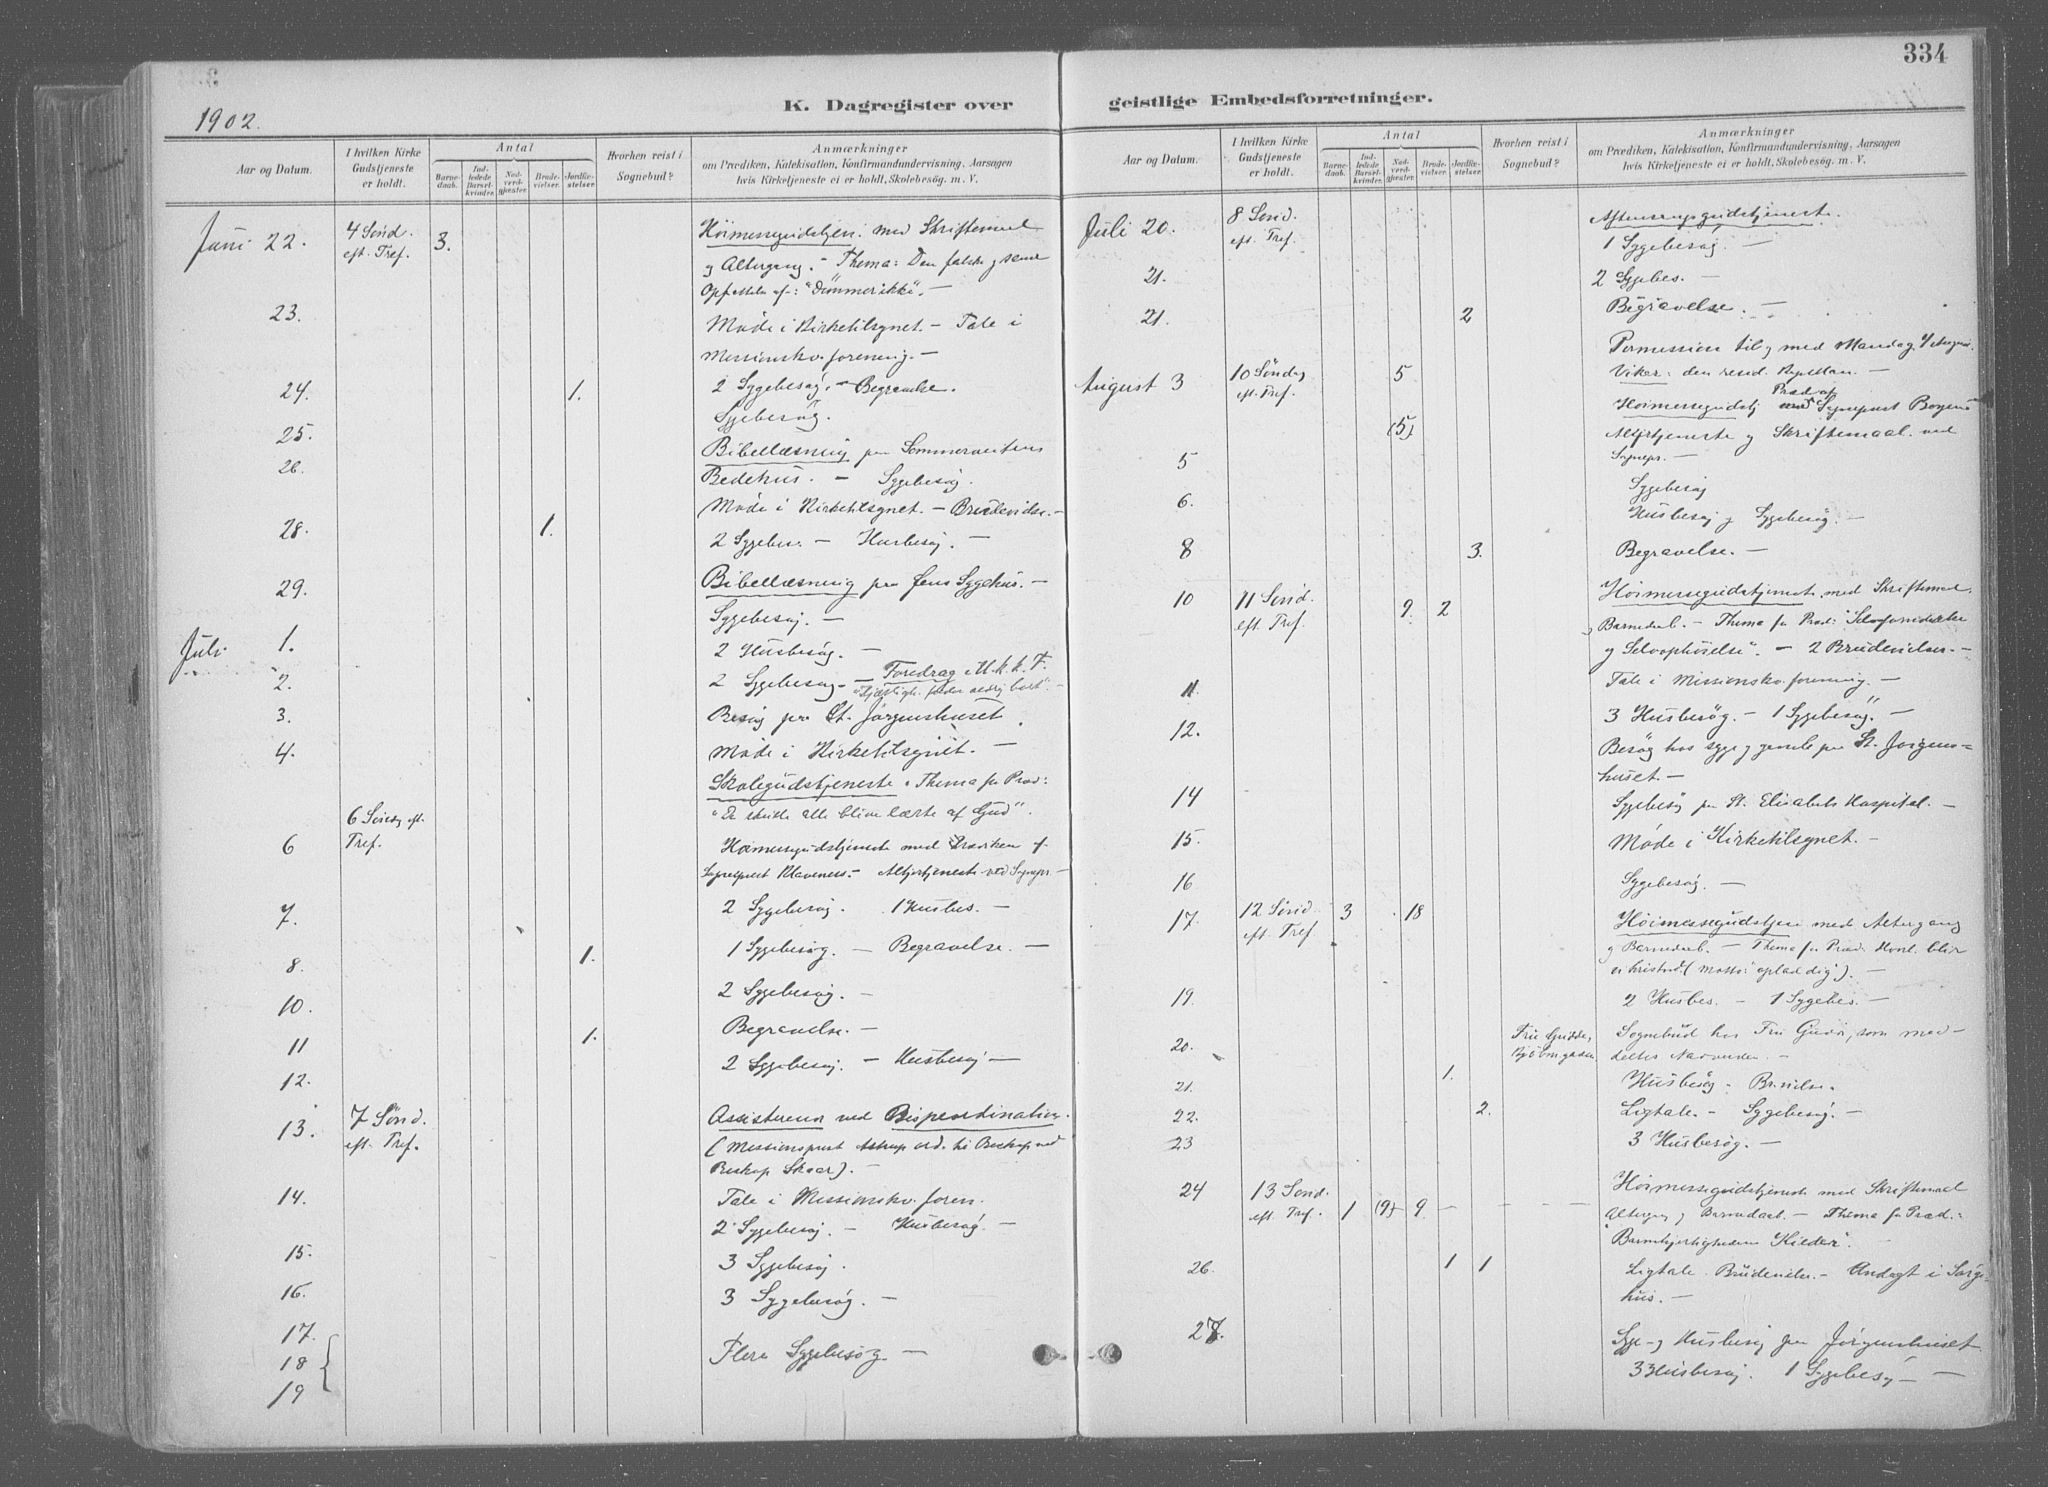 334
1902.
K. Dagregister over
geistlige Embedsforretninger.
Aar og Datum.
I hvilken Kirke Gudstjeneste er holdt.
Antal
Barnedaab.
Indledede Barselkvinder.
Nadverdgjæster.
Brudevielser.
Jordfæstelser.
Hvorhen reist i Sognebud?
Anmærkninger
om Prædiken, Katekisation, Konfirmandundervisning, Aarsagen
hvis Kirketjeneste ei er holdt, Skolebesøg. m. V.
Juni 22. 4 Sønd. eft. Tref. 3. Høimessegudstjen. med Skriftemaal
og Altergang. - Thema: Den falske og sande
Opfattelse af: "Dømmer ikke". -
23. Møde i Kirketilsynet. - Tale i
Missionskv.forening. -
24. 1. 2 Sygebesøg. - Begravelse.
25. Sygebesøg.
26. Bibellæsning paa
Bedehus. - Sygebesøg.
28. 1. Møde i Kirketilsynet. - Brudevielse. -
2 Sygebes. - Husbesøg. -
29. Bibellæsning paa Jens Sygehus. -
Sygebesøg. -
Juli 1. 2 Husbesøg. -
2. 2 Sygebesøg. - Foredrag i M.k.k.F.
"Kjærlighe. falder aldrig bort". -
3. Besøg paa St. Jørgenshuset
4. Møde i Kirketilsynet. -
Skolegudstjeneste. Thema for Præd:
"De skulle alle blive lærte af Gud".
6 6 Søndag eft. Tref. Høimessegudstjeneste med Prædiken af
Sogneprest Klaveness. - Altertjeneste ved Sognepr. -
7. 2 Sygebesøg. 1 Husbes. -
8. 1. 1 Sygebesøg. - Begravelse. -
10. 2 Sygebesøg. -
11 1. Begravelse. -
12. 2 Sygebesøg. - Husbesøg -
13. 7 Sønd. eft. Tref. Assisterer ved Bispeordination.
(Missionsprest Astrup ord. til Biskop ved
Biskop Skaar). -
14. Tale i Missionskv.foren.
2 Sygebesøg. - Husbesøg. -
15. 3 Sygebesøg.
16. 3 Sygebesøg. -
17.
18 Flere Sygebesøg. -
19
Aar og Datum.
I hvilken Kirke Gudstjeneste er holdt.
Antal
Barnedaab.
Indledede Barselkvinder.
Nadverdgjæster.
Brudevielser.
Jordfæstelser.
Hvorhen reist i Sognebud?
Anmærkninger
om Prædiken, Katekisation, Konfirmandundervisning, Aarsagen
hvis Kirketjeneste ei er holdt, Skolebesøg. m. V.
Juli 20. 8 Sønd. eft. Tref. Aftensangsgudstjeneste.
1 Sygebesøg. -
21. 2 Sygebes. -
21. 2 Begravelse. -
Permission til og med Mandag 4 August.
Vikar: den resid. Kapellan. -
August 3 10 Søndag eft. Tref. 5 Høimessegudstj Præd. af Sogneprest
(5) Altertjeneste og Skriftemaal ved
Sognepr. -
5 Sygebesøg
6. Husbesøg og Sygebesøg. -
8 3. Begravelse. -
10 11 Sønd. eft. Tref. 9. 2 Høimessegudstjeneste med Skriftemaal
og Barnedaab. - Thema for Præd: "Selvfornedrelse
og Selvophøielse". - 2 Brudevielser. -
11. Tale i Missionskv.forening. -
12. 3 Husbesøg. - 1 Sygebesøg. -
Besøg hos syge og gamle paa St. Jørgens-
huset. -
14 Sygebesøg paa St. Elisabets Hospital. -
15. Møde i Kirketilsynet. -
16 Sygebesøg. -
17. 12 Sønd. eft. Tref 3 18 Høimessegudstjen med Altergang
og Barnedaab. - Thema for Præd.
(Motto: "oplad dig"). -
19. 2 Husbes. - 1 Sygebes. -
20. Sognebud hos Fru som med-
deltes Nadverden. -
21. 1. Husbesøg. Brudvielse.
22. 2. Ligtale. - Sygebesøg. -
23 3 Husbesøg. -
24 13 Sønd. eft. Tref. 1 (9) 9. - - - - Høimessegudstjeneste med Skriftemaal
Altergang og Barnedaab. - Thema for Præd.:
"Barmhjertighedens Kilder".
26. 1 1 Ligtale. Brudevielse. - Andagt i Sørge-
hus. -
27. Syge- og Husbesøg paa Jørgenshuset
3 Husbesøg. 1 Sygebesøg - -